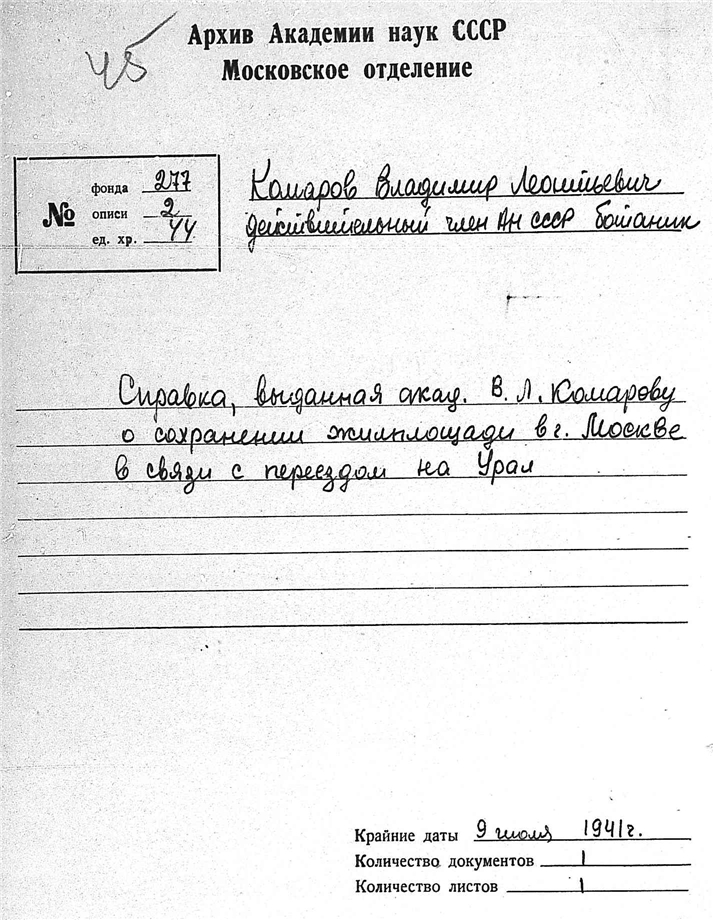 45
Архив Академии наук СССР
Московское отделение
№
фонда 277
описи 2
ед. хр. 44
Комаров Владимир Леонтьевич
действительный член АН СССР ботаник
Справка, выданная акад. В. Л. Комарову
о сохранении жилплощади в г. Москве
в связи с переездом на Урал
Крайние даты 9 июля 1941г.
Количество документов 1
Количество листов 1